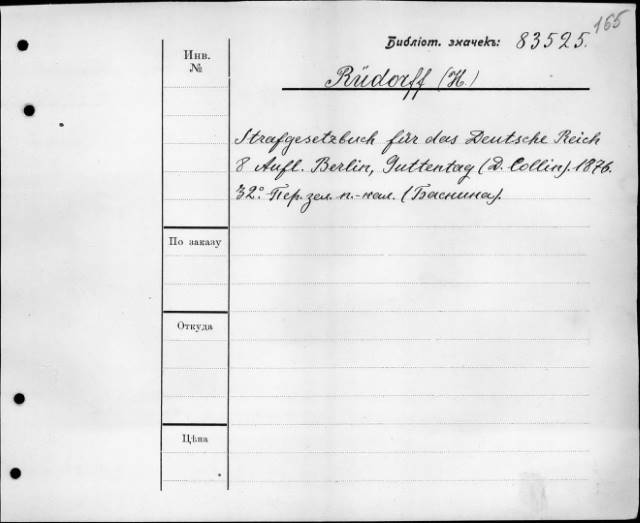 165
Библіот. значекъ: 83525.
Инв.
№
Rüdorff (H.)
Strafgesetzbuch für das Deutsche Reich
8 Aufl. Berlin, Guttentag (D. Collin). 1876.
32°. Пер. зел. п.-кал. (Баснина).
По заказу
Откуда
Цѣна